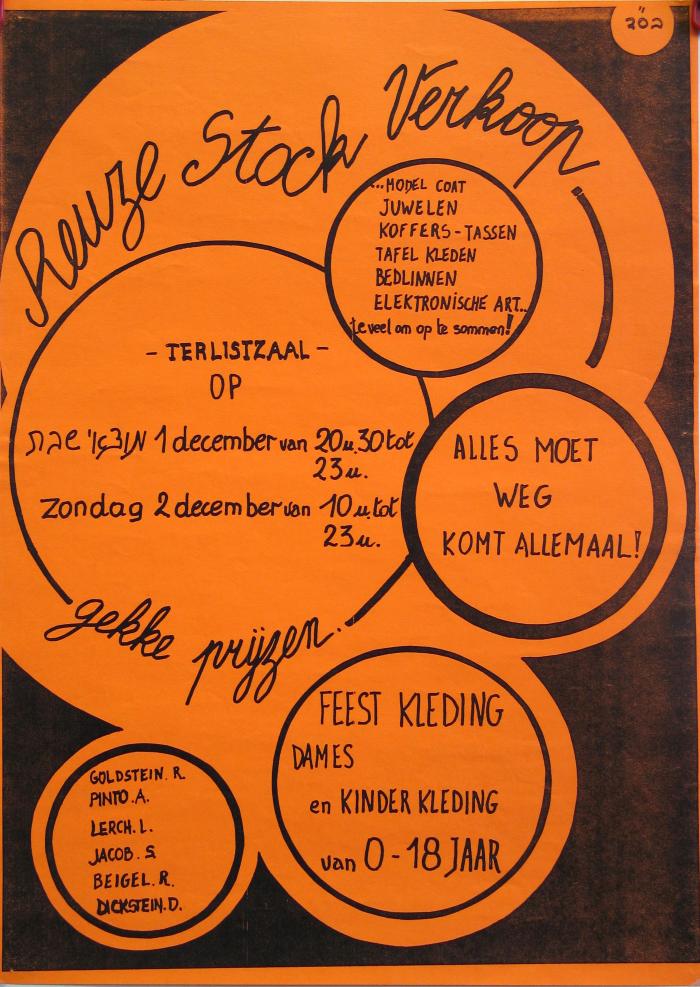 בס"ד
Reuze Stock Verkoop
...MODEL COAT
JUWELEN
KOFFERS-TASSEN
TAFEL KLEDEN
BEDLINNEN
ELEKTRONISCHE ART...
te veel om op te sommen!
- TERLISTZAAL -
OP
מוצאי שבת 1 december van 20u.30 tot
23u.
Zondag 2 december van 10u. tot
23u.
gekke prijzen..
ALLES MOET
WEG
KOMT ALLEMAAL!
FEEST KLEDING
DAMES
en KINDER KLEDING
van 0-18 JAAR
GOLDSTEIN. R.
PINTO. A.
LERCH. L.
JACOB. S
BEIGEL. R.
DICKSTEIN. D.